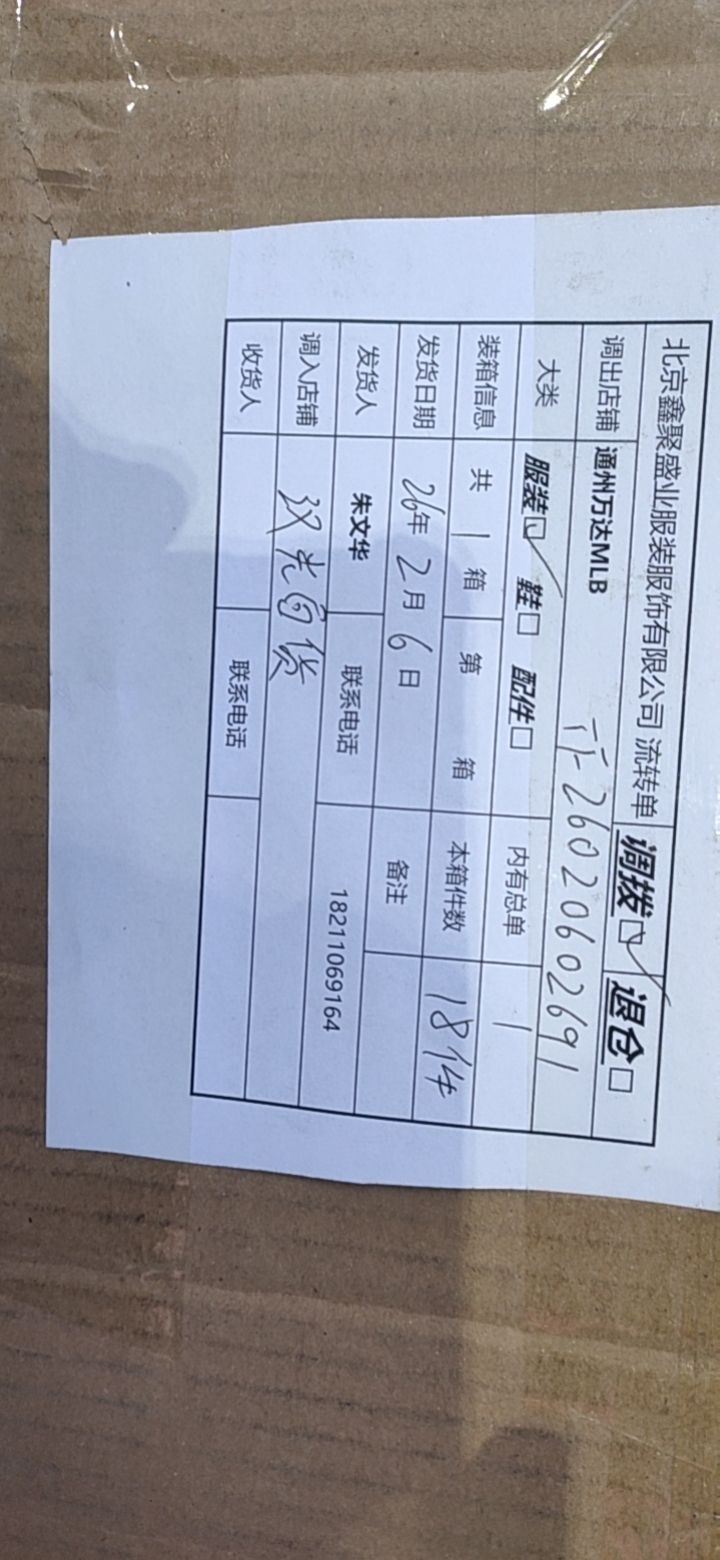 北京鑫聚盛业服装服饰有限公司 流转单 调拨☑ 退仓□
调出店铺 通州万达MLB 26020602691
大类 服装☑ 鞋□ 配件□ 内有总单 1
装箱信息 共 1 箱 第 箱 本箱件数 18件
发货日期 26年 2月 6日 备注
发货人 朱文华 联系电话 18211069164
调入店铺 汉光百货
收货人 联系电话